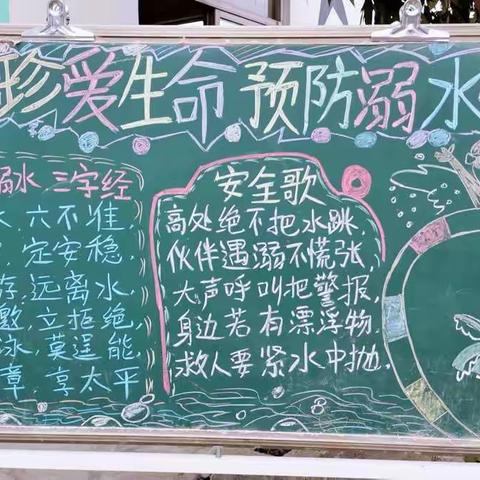 珍爱生命 预防溺水
溺水 三字经
水,六不准,
定安稳,
存,远离水,
数,立拒绝,
泳,莫逞能,
章,享太平
安全歌
高处绝不把水跳,
伙伴遇溺不慌张,
大声呼叫把警报,
身边若有漂浮物,
救人要紧水中抛,